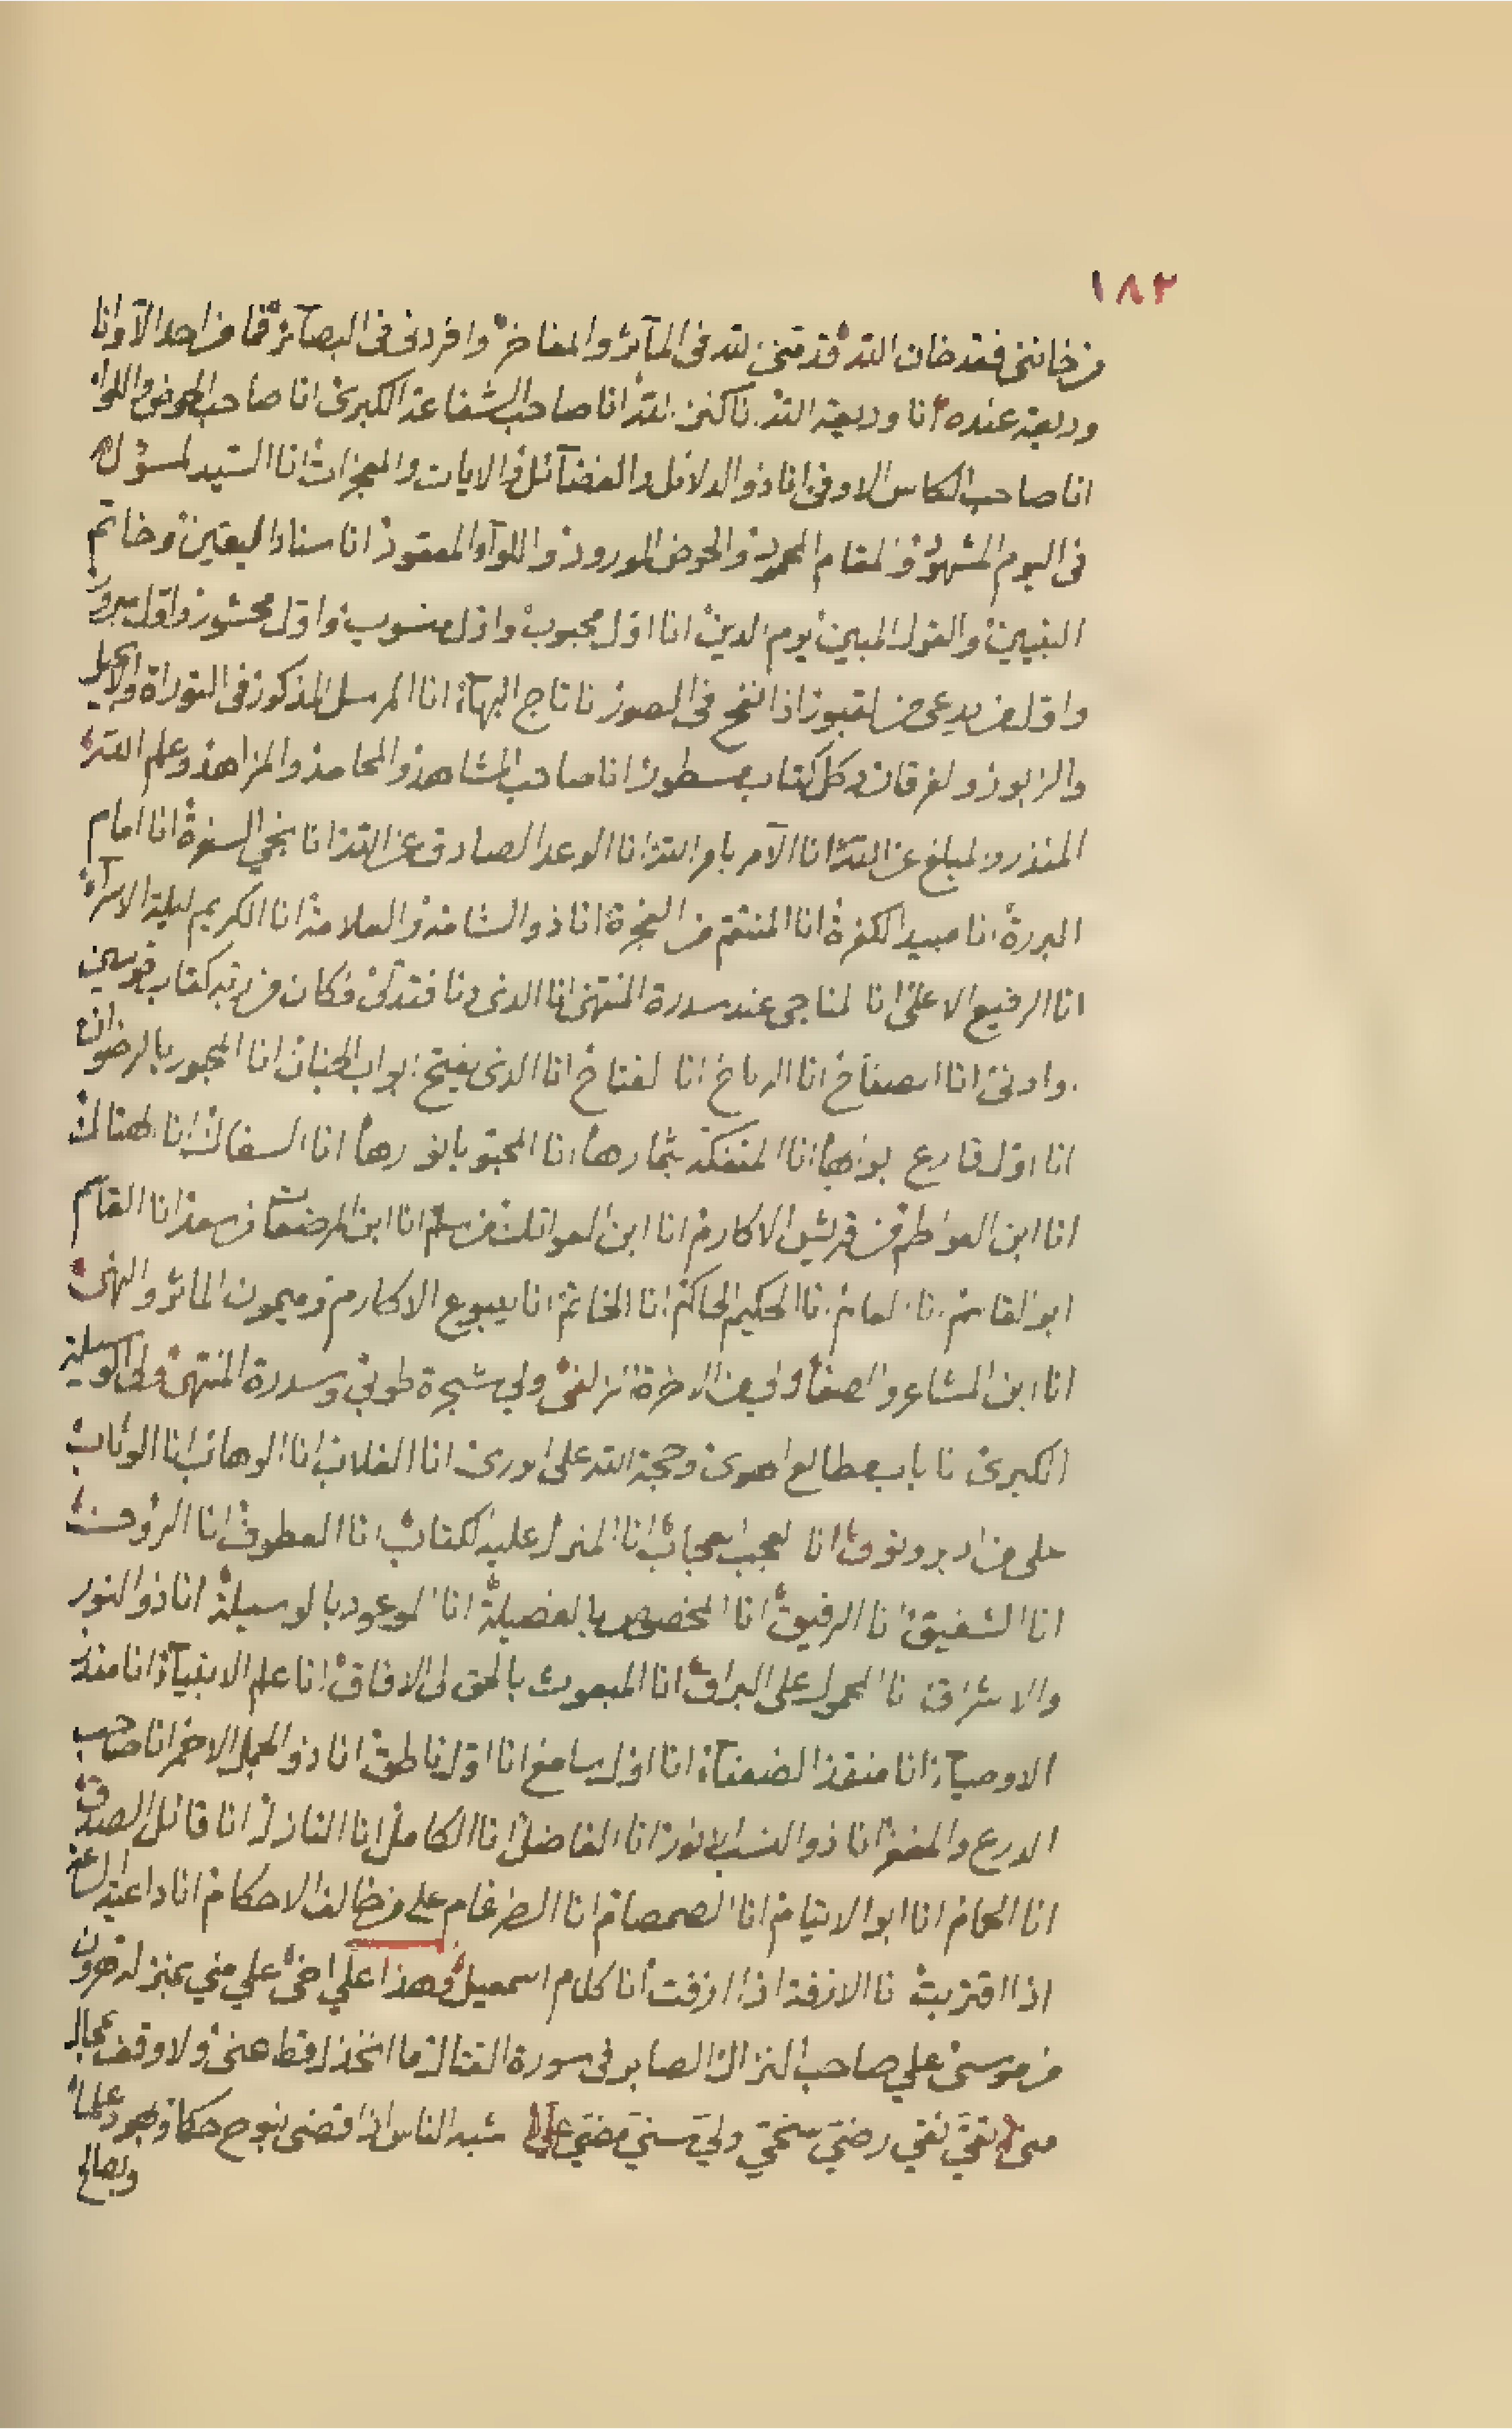 ١٨٢
من خانني فقد خان الله قدمني الله في المآثر والمفاخر وافردني في البصآئر فما من احد الا وانا
وديعة عنده انا وديعة الله انا كنز الله انا صاحب الشفاعة الكبرى انا صاحب الحوض واللواء
انا صاحب الكاس الاوفى انا ذو الدلائل والفضآئل والايات والمعجزات انا السيد المسؤل
في اليوم المشهود والمقام المحمود والحوض المورود واللوآء المعقود انا سناد اليقين وخاتم
النبيين والقول المبين يوم الدين انا اول محبوب واول منسوب واول محشور واول مبرور
واول من يدعى من القبور اذا نفخ في الصور انا تاج البهآء انا المرسل المذكور في التوراة والانجيل
والزبور والفرقان وكل كتاب مسطور انا صاحب المشاهد والمحامد والمزاهد وعلم الله
المنذر والمبلغ عن الله انا الآمر بامر الله انا الوعد الصادق عن الله انا نجي السفرة انا امام
البررة انا مبيد الكفرة انا المنتقم من الفجرة انا ذو الشامة والعلامة انا الكريم ليلة الاسرآء
انا الرفيع الاعلى انا المناجي عند سدرة المنتهى انا الذي دنا فتدلى فكان من ربه كقاب قوسين
او ادنى انا الصفاح انا الرباح انا الفتاح انا الذي يفتح ابواب الجنان انا المحبور بالرضوان
انا اول قارع ابوابها انا المتفكه بثمارها انا المحبو بانوارها انا السفاك انا الهتاك
انا ابن الفواطم من قريش الاكارم انا ابن العواتك من سليم انا ابن المرضعات من سعد انا القاسم
ابو القاسم انا العالم انا الحكيم الحاكم انا الخاتم انا ينبوع الاكارم وميمون المآثر والنهى
انا ابن المشاعر والصفا ولي في الاخرة الزلفى ولي شجرة طوبى وسدرة المنتهى ولي الوسيلة
الكبرى انا باب مطالع الهدى وحجة الله على الورى انا الغلاب انا الوهاب انا الوثاب
على من ادبر وتولى انا العجب العجاب انا المنزل عليه الكتاب انا العطوف انا الرؤف
انا الشفيق انا الرفيق انا المخصوص بالفضيلة انا الموعود بالوسيلة انا ذو النور
والاشراق انا المحمول على البراق انا المبعوث بالحق الى الافاق انا علم الانبيآء انا منذر
الاوصيآء انا منقذ الضعفآء انا اول سامع انا اول ناطق انا ذو الجمل الاحمر انا صاحب
الدرع والمغفر انا ذو النسب الانور انا الفاضل انا الكامل انا النازل انا قائل الصدق
انا الحمام انا ابو الايتام انا الصمصام انا الضرغام على من خالف الاحكام انا داعية الساعة
اذا اقتربت انا الازفة اذا ازفت انا كلام اسمعيل وهذا علي اخي علي مني بمنزلة هرون
من موسى علي صاحب النزال الصابر في سورة القتال ما انخذل قط عني ولا وقف بمجال
مني تقي نقي رضي سخي ولي سني مضي علي اشبه الناس اذا قضى بنوح حكما وبهود علما
وبصالح